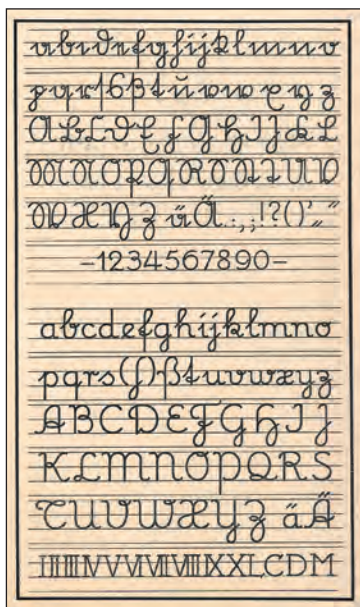 abcdefghijklmno
pqrſsßtuvwxyz
ABCDEFGHIJKL
MNOPQRSStUV
WXYZ äÄ.:,;!?()'„“
–1234567890–
abcdefghijklmno
pqrs(ſ)ßtuvwxyz
ABCDEFGHIJ
KLMNOPQRS
TUVWXYZ äÄ
I II III IV V VI VII VIII IX X L C D M